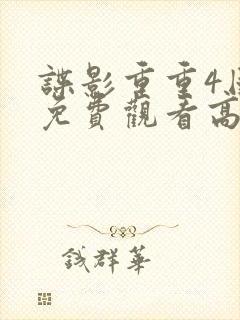 諜影重重4
免費觀看高
錢群華